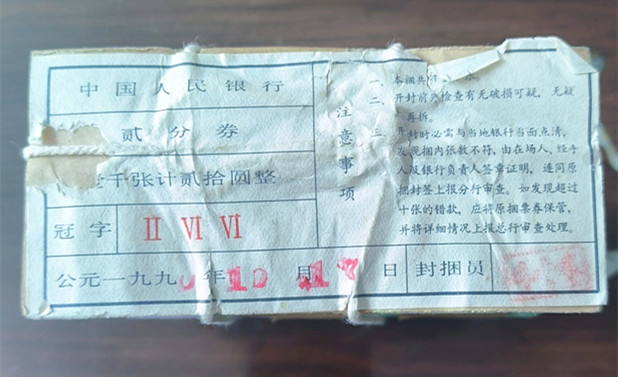 中国人民银行
贰分券
壹千张计贰拾圆整
冠字 II VI VI
公元一九九 年10月17日 封捆员
注意事项
一、本捆共
二、开封前先检查有无破损可疑，无疑
再拆。
三、开封时必需与当地银行当面点清，
发现捆内张数不符，由在场人，经手
人及银行负责人签章证明，连同原
捆封签上报分行审查。如发现超过
十张的错款，应将原捆票券保管，
并将详细情况上报总行审查处理。